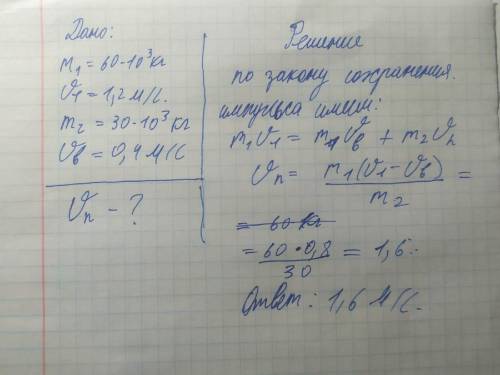 Дано:
m₁ = 60·10³ кг
V₁ = 1,2 м/с.
m₂ = 30·10³ кг
Vв = 0,4 м/с
Vп - ?
Решение
по закону сохранения.
импульса имеем:
m₁V₁ = m₁Vв + m₂Vп
Vп = m₁(V₁-Vв) / m₂ =
= 60 кг
= 60·0,8 / 30 = 1,6.
Ответ: 1,6 м/с.